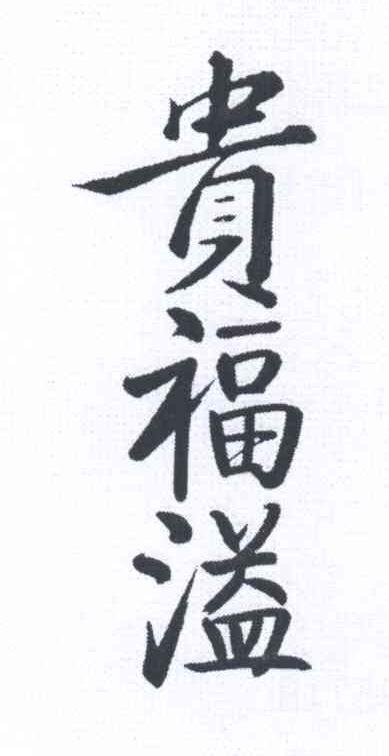 貴福溢